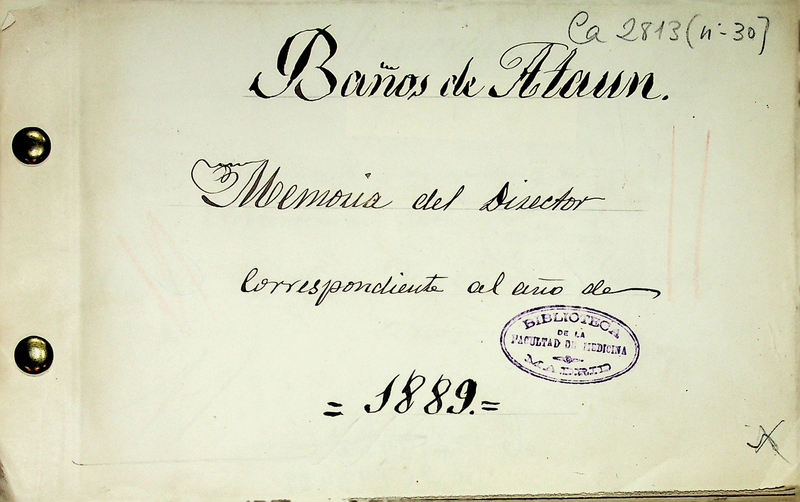 Ca 2813 (n-30)
Baños de Ataun.
Memoria del Director
correspondiente al año de
BIBLIOTECA
DE LA
FACULTAD DE MEDICINA
MADRID
= 1889.=